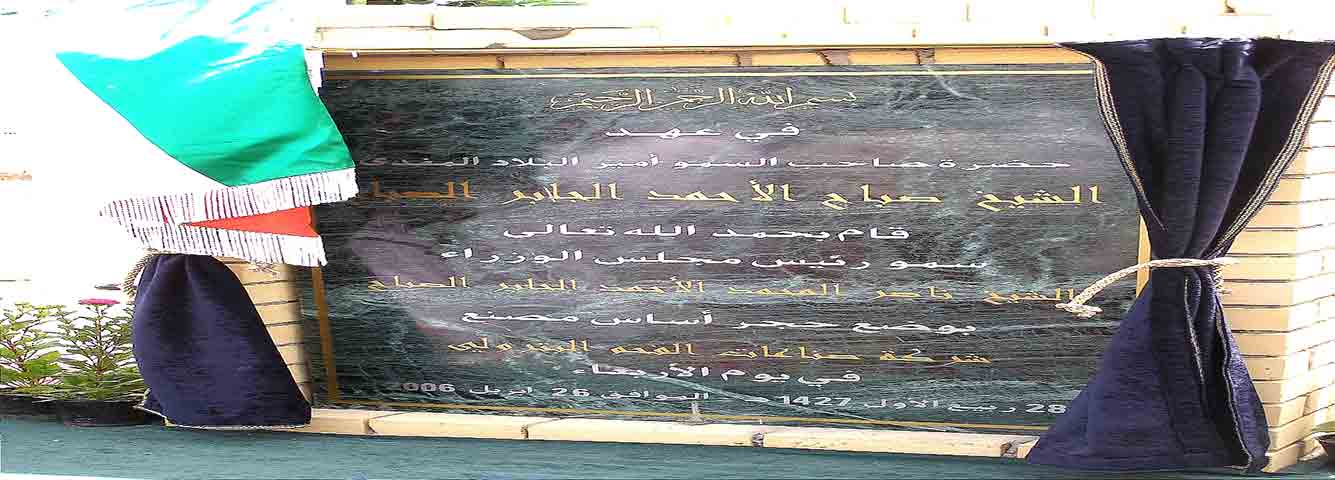 بسم الله الرحمن الرحيم
في عهد
حضرة صاحب السمو أمير البلاد المفدى
الشيخ صباح الأحمد الجابر الصباح
قام بحمد الله تعالى
سمو رئيس مجلس الوزراء
الشيخ ناصر المحمد الأحمد الجابر الصباح
بوضع حجر أساس مصنع
شركة صناعات الفحم البترولي
في يوم الأربعاء
28 ربيع الأول 1427 هـ الموافق 26 ابريل 2006